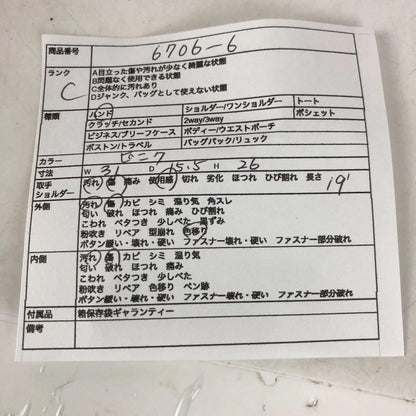 商品番号 6706-6
ランク C A目立った傷や汚れが少なく綺麗な状態
B問題なく使用できる状態
C全体的に汚れあり
Dジャンク、バッグとして使えない状態
種類 ハンド ショルダー/ワンショルダー トート
クラッチ/セカンド 2way/3way ポシェット
ビジネス/ブリーフケース ボディー/ウエストポーチ
ボストン/トラベル バッグパック/リュック
カラー ピンク
寸法 W 31 D 15.5 H 26
取手 汚れ 傷 痛み 使用感 切れ 劣化 ほつれ ひび割れ 長さ 19
ショルダー
外側 汚れ 傷 カビ シミ 湿り気 角スレ
匂い 破れ ほつれ 痛み ひび割れ
こわれ ベタつき 少しべた 黒ずみ
粉吹き リペア 型崩れ 色移り
ボタン緩い・壊れ・硬い ファスナー壊れ・硬い ファスナー部分破れ
内側 汚れ 傷 カビ シミ 湿り気
匂い 破れ ほつれ 痛み
こわれ ベタつき 少しべた
粉吹き リペア 色移り ペン跡
ボタン緩い・壊れ・硬い ファスナー壊れ・硬い ファスナー部分破れ
付属品 箱保存袋ギャランティー
備考